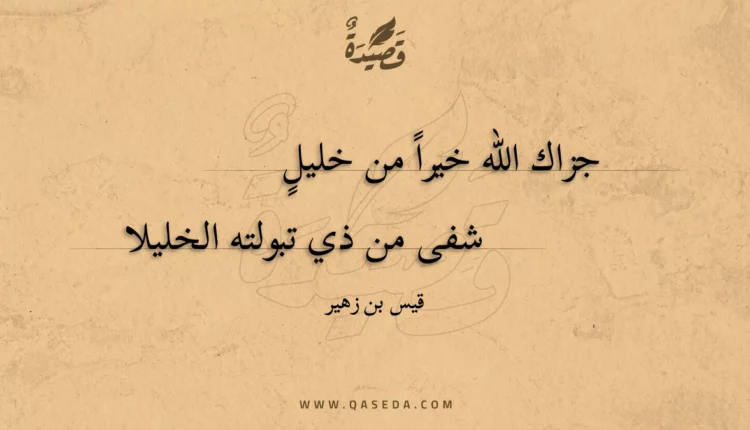 قَصِيْدَةٌ
جزاك الله خيراً من خليلٍ
شفى من ذي تبولته الخليلا
قيس بن زهير
WWW.QASEDA.COM